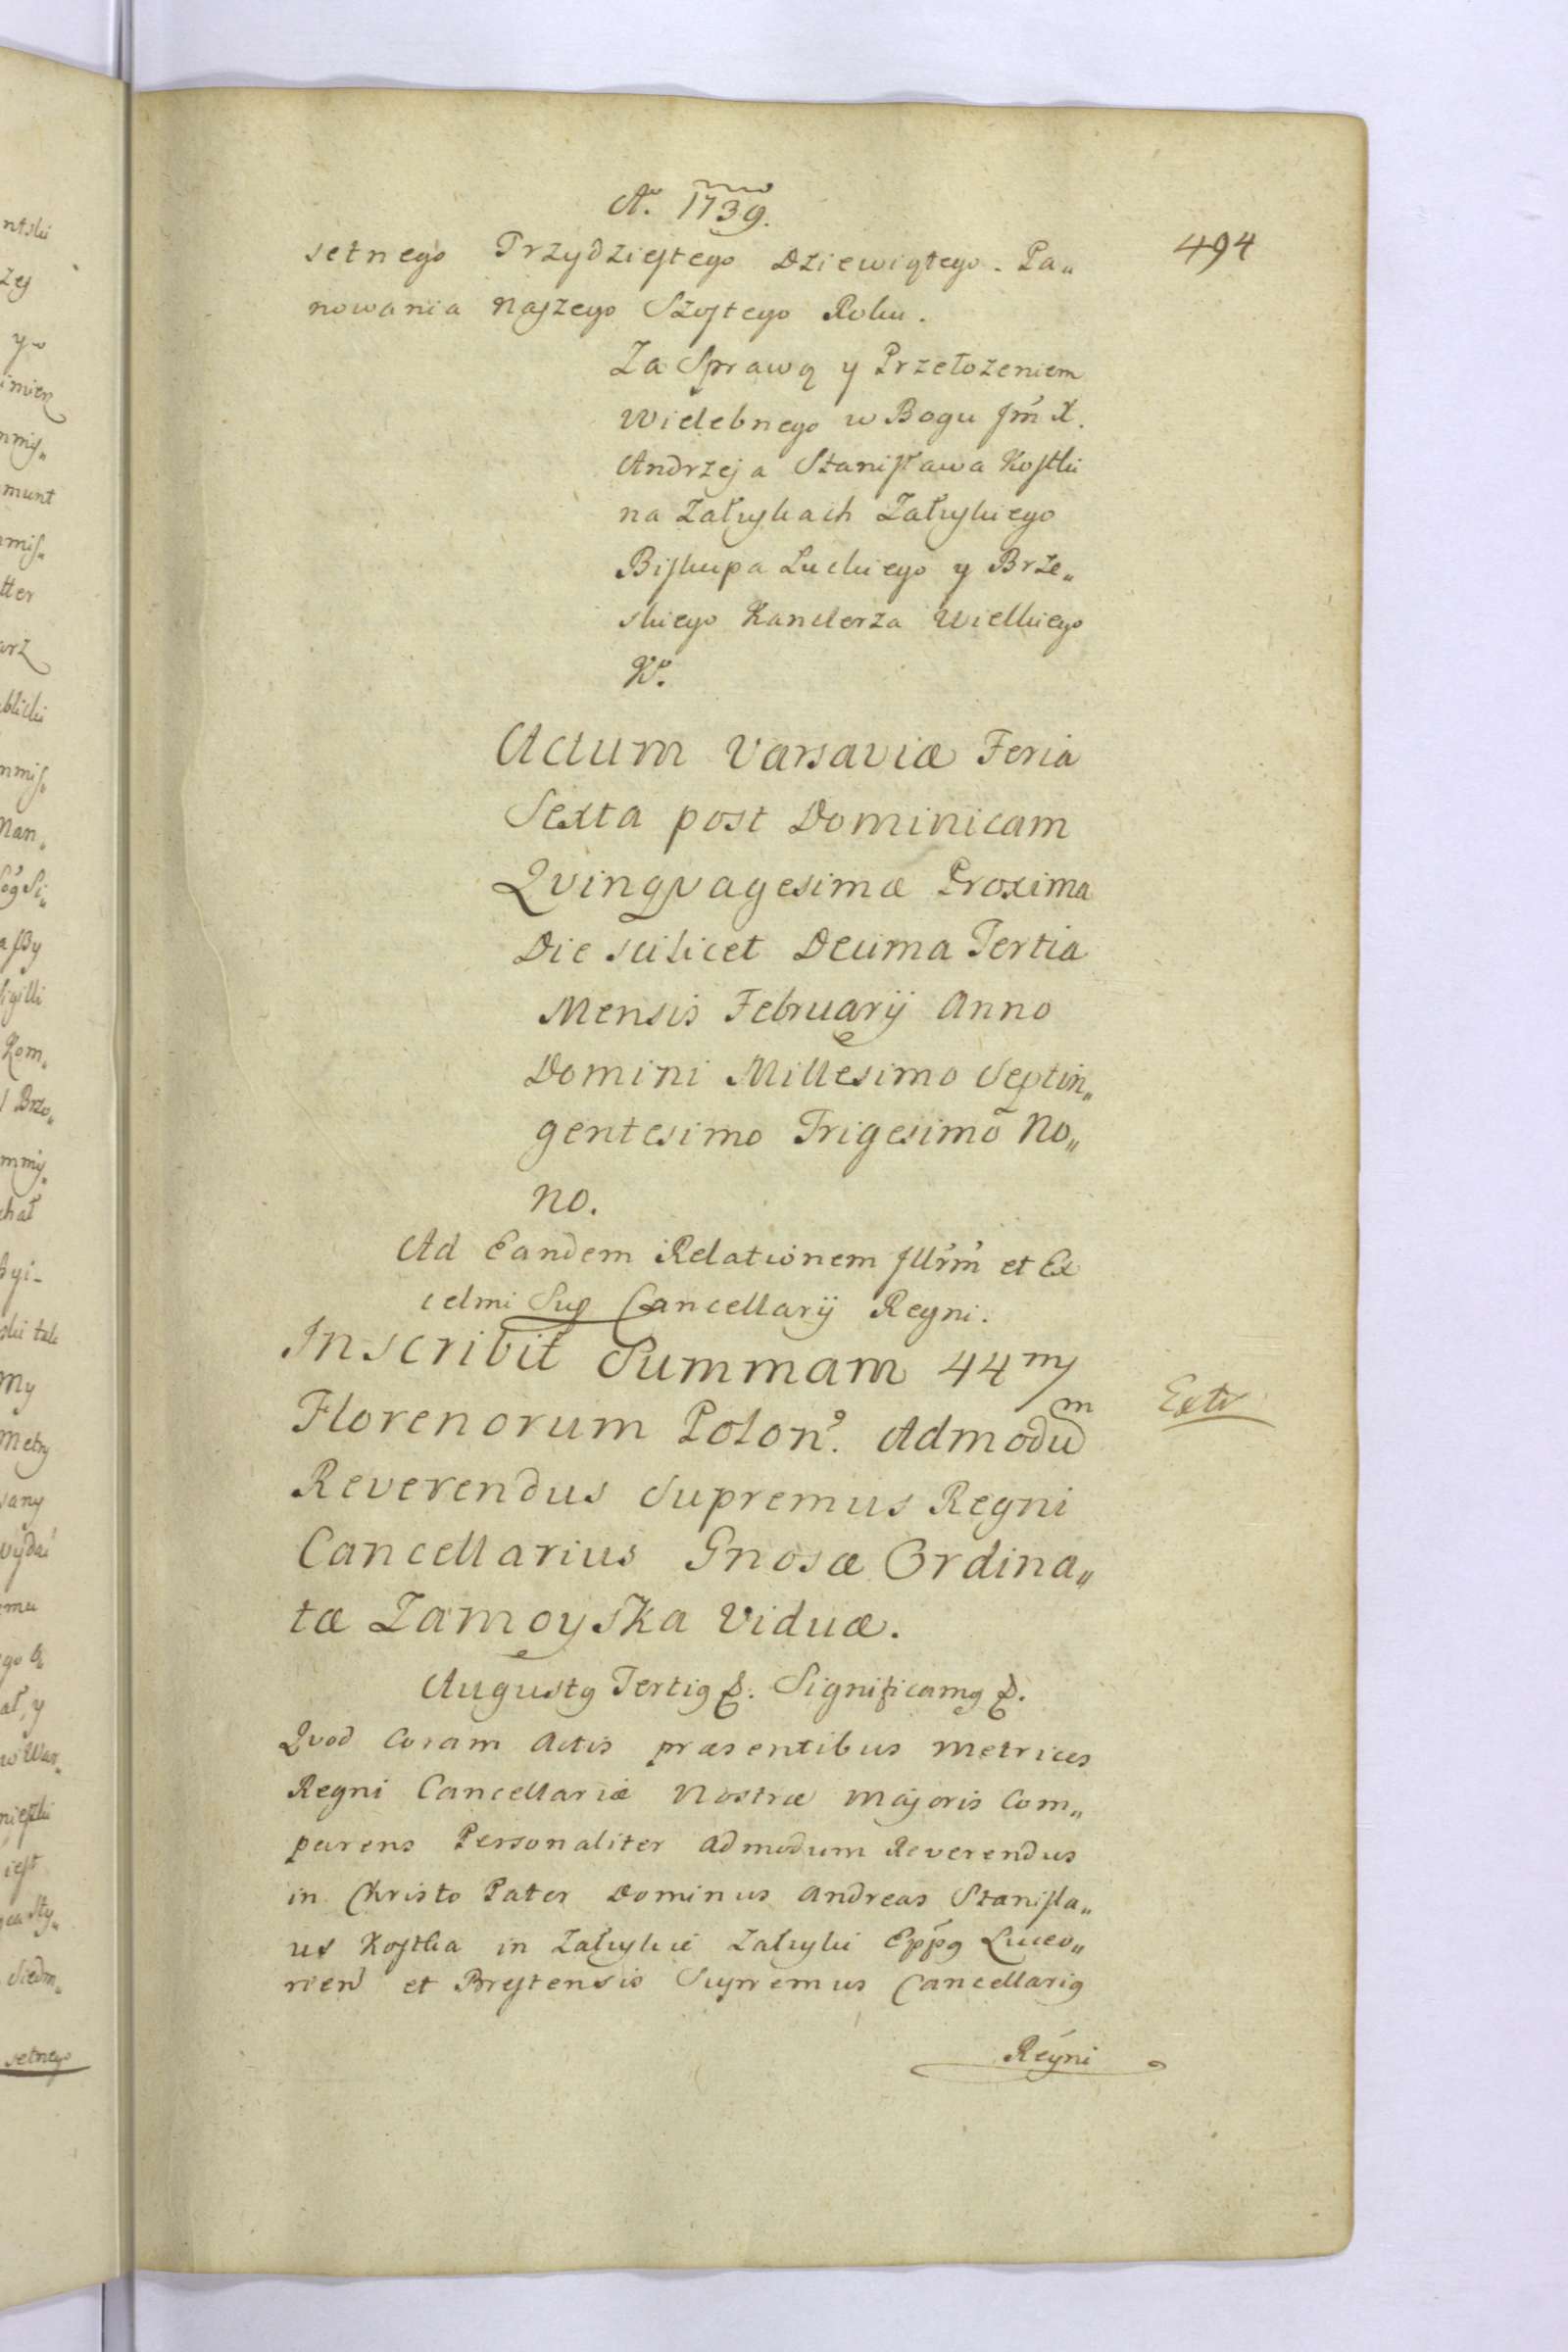 Aº 1739.
494
setnego Trzydziestego Dziewiątego. Pa„
nowania naszego Szostego Roku.
Za Sprawą y Przełozeniem
Wielebnego w Bogu Jm̃ X.
Andrzeja Stanisława Kostki
na Załuskach Załuskiego
Biskupa Luckiego y Brze„
skiego Kanclerza Wielkiego
Kº.
Actum Varsaviæ Feria
Sexta post Dominicam
Qvinqvagesimæ Proxima
Die scilicet Decima Tertia
Mensis Februarij Anno
Domini Millesimo Septin„
gentesimo Trigesimo No„
no.
Ad Eandem Relationem Jllrm̃ et Ex
celmi Sup Cancellarij Regni.
Inscribit Summam 44m/m
Extr
Florenorum Polonº. Admodũ
Reverendus Supremus Regni
Cancellarius Gnosæ Ordina„
tæ Zamoyska Viduæ.
Augustg Tertig &. Significamg &.
Qvod Coram Actis præsentibus Metrices
Regni Cancellariæ Nostræ Majoris Com„
parens Personaliter Admodum Reverendus
in Christo Pater Dominus Andreas Stanisla„
us Kostka in Załuskie Załuski Eppg Luceo„
rien et Brestensis Supremus Cancellarig
Regni
ntski
zey
y
imien
nmis„
munt
mis„
tter
arz
blicki
nmis„
Man„
a By
Sigilli
Kom„
Brze„
mmis„
chał
ski tak
my
Metry
vany
wydać
emu
go
ał, y
w War„
iest
Siedm„
setnego